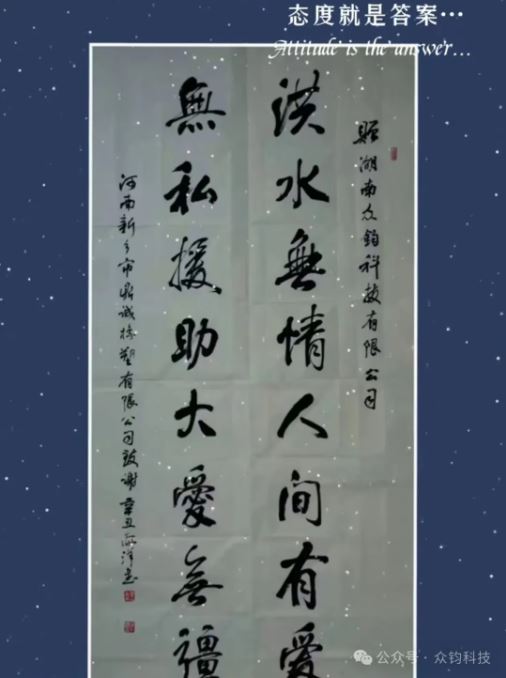 态度就是答案…
Attitude is the answer...
贈湖南众钧科技有限公司
洪水無情人间有爱
無私援助大愛無疆
河南新乡市鼎诚橡塑有限公司致谢 辛丑
公众号 · 众钧科技